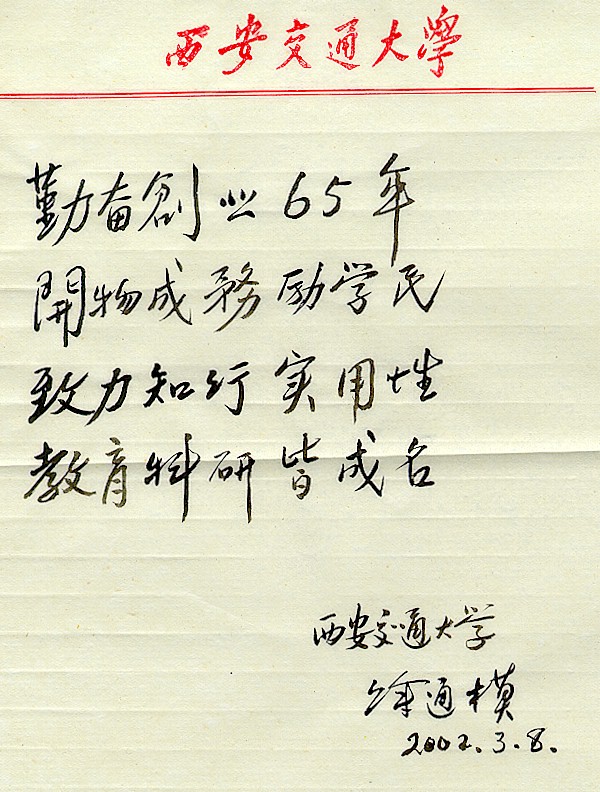 西安交通大學
勤奋創业65年
開物成務励学民
致力知行实用性
教育科研皆成名
西安交通大学
徐通模
2002.3.8.